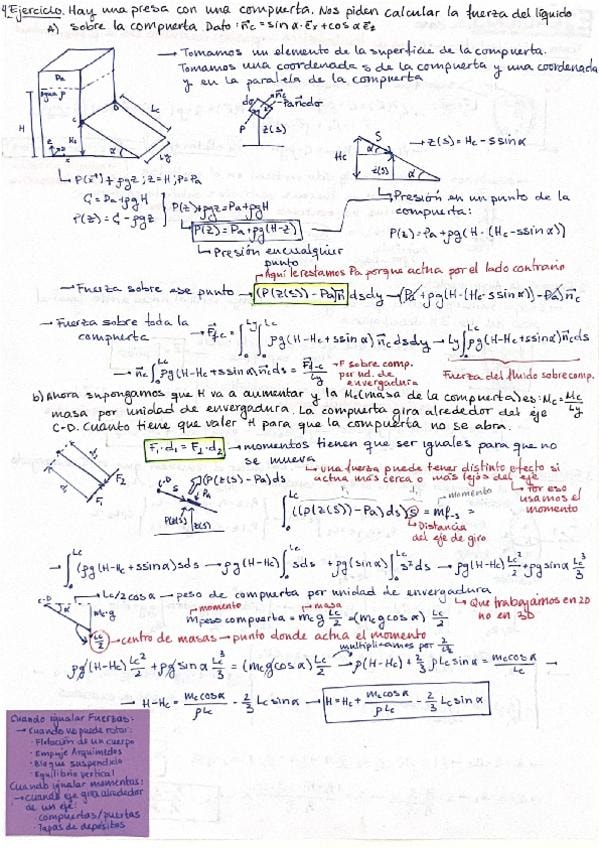 4 Ejercicio. Hay una presa con una compuerta. Nos piden calcular la fuerza del líquido
A) sobre la compuerta. Dato: n⃗c = sin α · e⃗x + cos α e⃗z
→ Tomamos un elemento de la superficie de la compuerta.
Tomamos una coordenada s de la compuerta y una coordenada
y en la paralela de la compuerta
Pa
agua ρ
H
Hc
C
D
Lc
Ly
α
z
dσ
n⃗c
-Pa n⃗c dσ
P
z(s)
S
Hc
α
z(s)
α
→ z(s) = Hc - s sin α
↳ P(x⃗) + ρgz ; z = H ; P = Pa
G = Pa + ρgH
P(z) = G - ρgz
P(z) + ρgz = Pa + ρgH
P(z) = Pa + ρg(H-z)
↳ Presión en cualquier
punto
↳ Presión en un punto de la
compuerta:
P(z) = Pa + ρg(H - (Hc - s sin α))
Aquí le restamos Pa porque actua por el lado contrario
→ Fuerza sobre ese punto → (P(z(s)) - Pa) n⃗ ds dy → (Pa + ρg(H - (Hc - s sin α)) - Pa) n⃗c
→ Fuerza sobre toda la
compuerta → F⃗f-c = ∫₀^Ly ∫₀^Lc ρg(H - Hc + s sin α) n⃗c ds dy → Ly ∫₀^Lc ρg(H - Hc + s sin α) n⃗c ds
→ n⃗c ∫₀^Lc ρg(H - Hc + s sin α) n⃗c ds = F⃗f-c / Ly
→ F sobre comp.
por ud. de
envergadura
Fuerza del fluido sobre comp.
b) Ahora supongamos que H va a aumentar y la Mc (masa de la compuerta) es: mc = Mc/Ly
masa por unidad de envergadura. La compuerta gira alrededor del eje
C-D. Cuanto tiene que valer H para que la compuerta no se abra.
F₁ · d₁ = F₂ · d₂ → momentos tienen que ser iguales para que no
se mueva
→ una fuerza puede tener distinto efecto si
actua más cerca o más lejos del eje
→ Por eso
usamos el
momento
F₂
F₁
C-D
(P(z(s)) - Pa) ds
Pa
P(z(s))
z(s)
∫₀^Lc ((P(z(s)) - Pa) ds) s = m
momento
↳ Distancia
del eje de giro
→ ∫₀^Lc (ρg(H - Hc + s sin α) s ds → ρg(H - Hc) ∫₀^Lc s ds + ρg sin α ∫₀^Lc s² ds → ρg(H - Hc) Lc²/2 + ρg sin α Lc³/3
C-D
→ Lc/2 cos α → peso de compuerta por unidad de envergadura
mc·g
Lc/2
momento
masa
m peso compuerta = mc g Lc/2 → (mc g cos α) Lc/2
→ Que trabajamos en 2D
no en 3D
→ centro de masas → punto donde actua el momento
multiplicamos por 2/Lc
ρg(H - Hc) Lc²/2 + ρg sin α Lc³/3 = (mc g cos α) Lc/2 → ρ(H - Hc) + 2/3 ρ Lc sin α = mc cos α / Lc →
→ H - Hc = mc cos α / ρ Lc - 2/3 Lc sin α → H = Hc + mc cos α / ρ Lc - 2/3 Lc sin α
Cuando igualar Fuerzas:
→ Cuando no puede rotar:
· Flotación de un cuerpo
· Empuje Arquímedes
· Bloque suspendido
· Equilibrio vertical
Cuando igualar momentos:
→ Cuando eje gira alrededor
de un eje:
· compuertas/puertas
· Tapas de depósitos